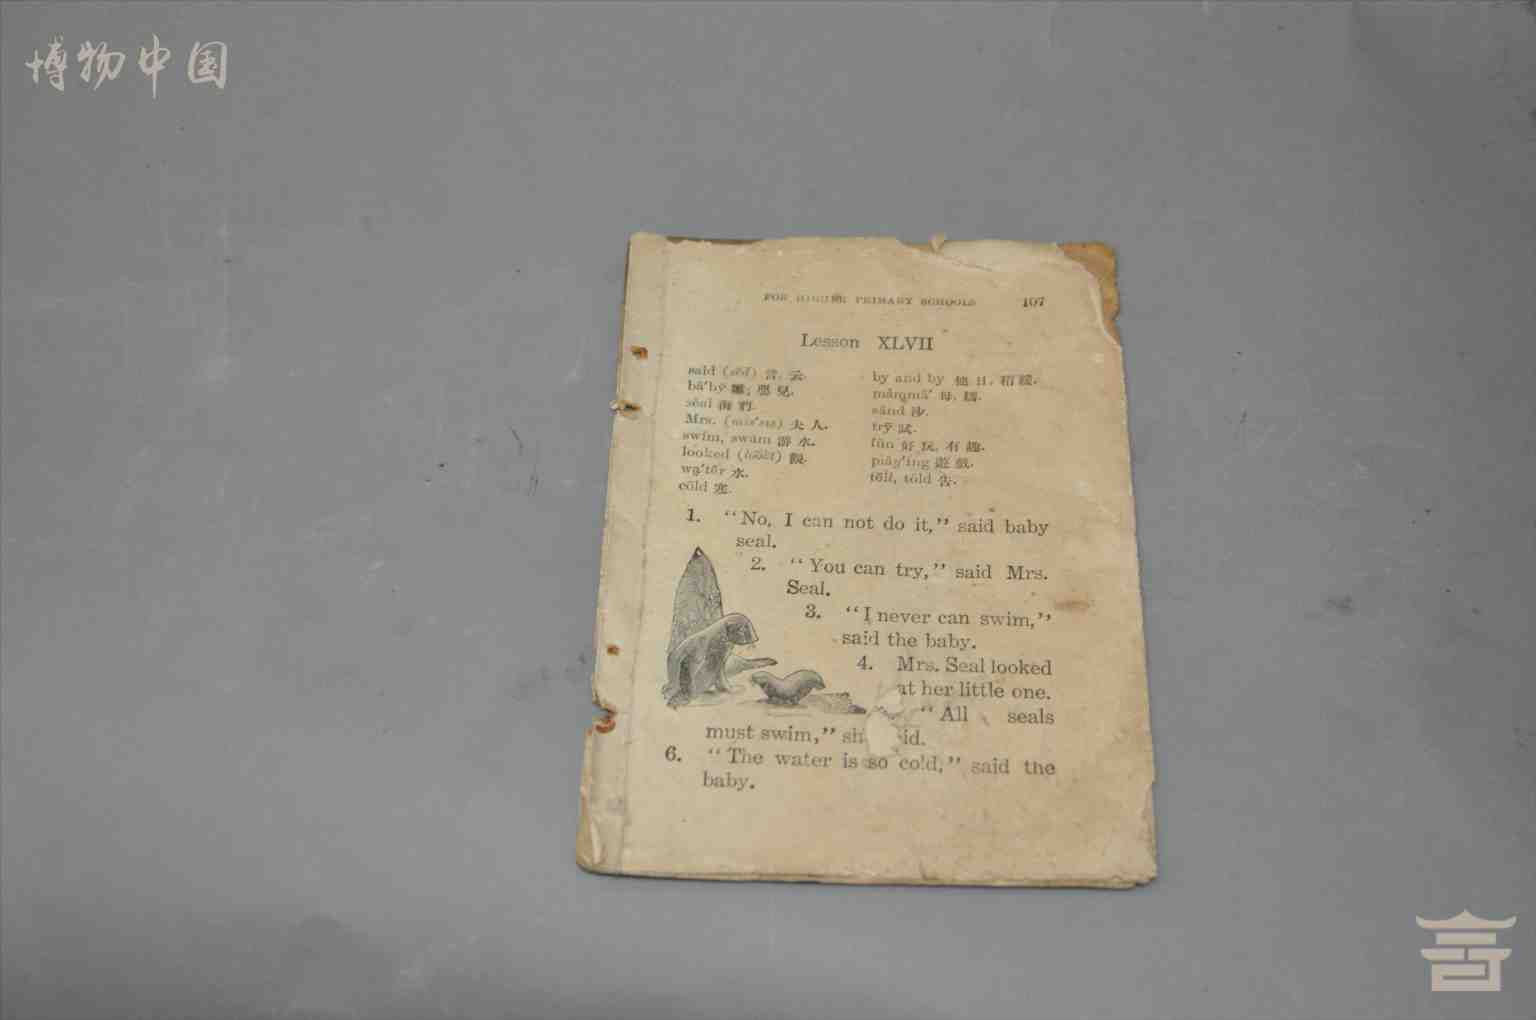 博物中国
FOR HIGHER PRIMARY SCHOOLS 107
Lesson XLVII
said (sĕd) 言, 云.
bā'bȳ 雛; 嬰兒.
sēal 海豹.
Mrs. 夫人.
swim, swam 游水.
looked 觀.
wa̤'tẽr 水.
cōld 寒.
by and by 他日, 稍緩.
母, 媽.
sănd 沙.
trȳ 試.
fŭn 好玩, 有趣.
plāy'ing 遊戲.
tĕll, tōld 告.
1. “No, I can not do it,” said baby
seal.
2. “You can try,” said Mrs.
Seal.
3. “I never can swim,”
said the baby.
4. Mrs. Seal looked
at her little one.
“All seals
must swim,” sh id.
6. “The water is so cold,” said the
baby.